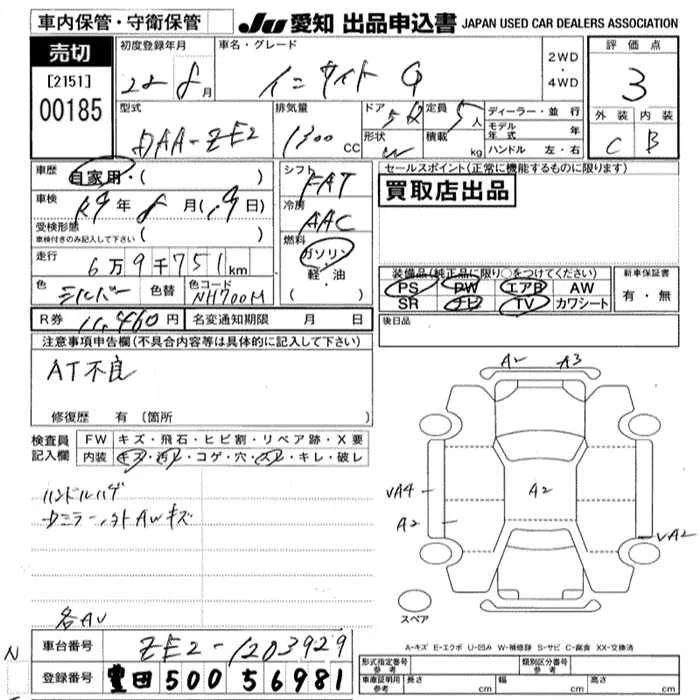 車内保管・守衛保管 JU 愛知 出品申込書 JAPAN USED CAR DEALERS ASSOCIATION
売切
[2151]
00185
初度登録年月 車名・グレード 2WD・4WD
22 8月 インサイト G
評価点
3
外装 内装
C B
型式 排気量 ドア 定員 ディーラー・並行
DAA-ZE2 1300 CC 5 5人 モデル年式 年
形状 積載 kg ハンドル 左・右
W
車歴 自家用・( )
シフト FAT
セールスポイント(正常に機能するものに限ります)
買取店出品
車検 R9年8月(19日)
冷房 AAC
受検形態
車検付きのみ記入して下さい ( )
燃料 ガソリン・軽・油 ( )
走行 6万9千751km
装備品(純正品に限り○をつけてください) 新車保証書
PS PW エアB AW 有・無
SR ナビ TV カワシート
色 シルバー 色替 色コード NH700M
R券 円 名変通知期限 月 日
後日品
注意事項申告欄(不具合内容等は具体的に記入して下さい)
AT不良
修復歴 有(箇所
検査員記入欄 FW キズ・飛石・ヒビ割・リペア跡・X要
内装 キズ・汚れ・コゲ・穴・スレ・キレ・破レ
ハンドルハゲ
AWキズ
A2 A3
VA4 A2
A2
VA2
スペア
各AU
A-キズ E-エクボ U-凹み W-補修跡 S-サビ C-腐食 XX-交換済
N 車台番号 ZE2-1203929
登録番号 豊田 500 56981
形式指定番号 参考 類別区分番号 参考
車庫証明用 参考 長さ cm 幅 cm 高さ cm